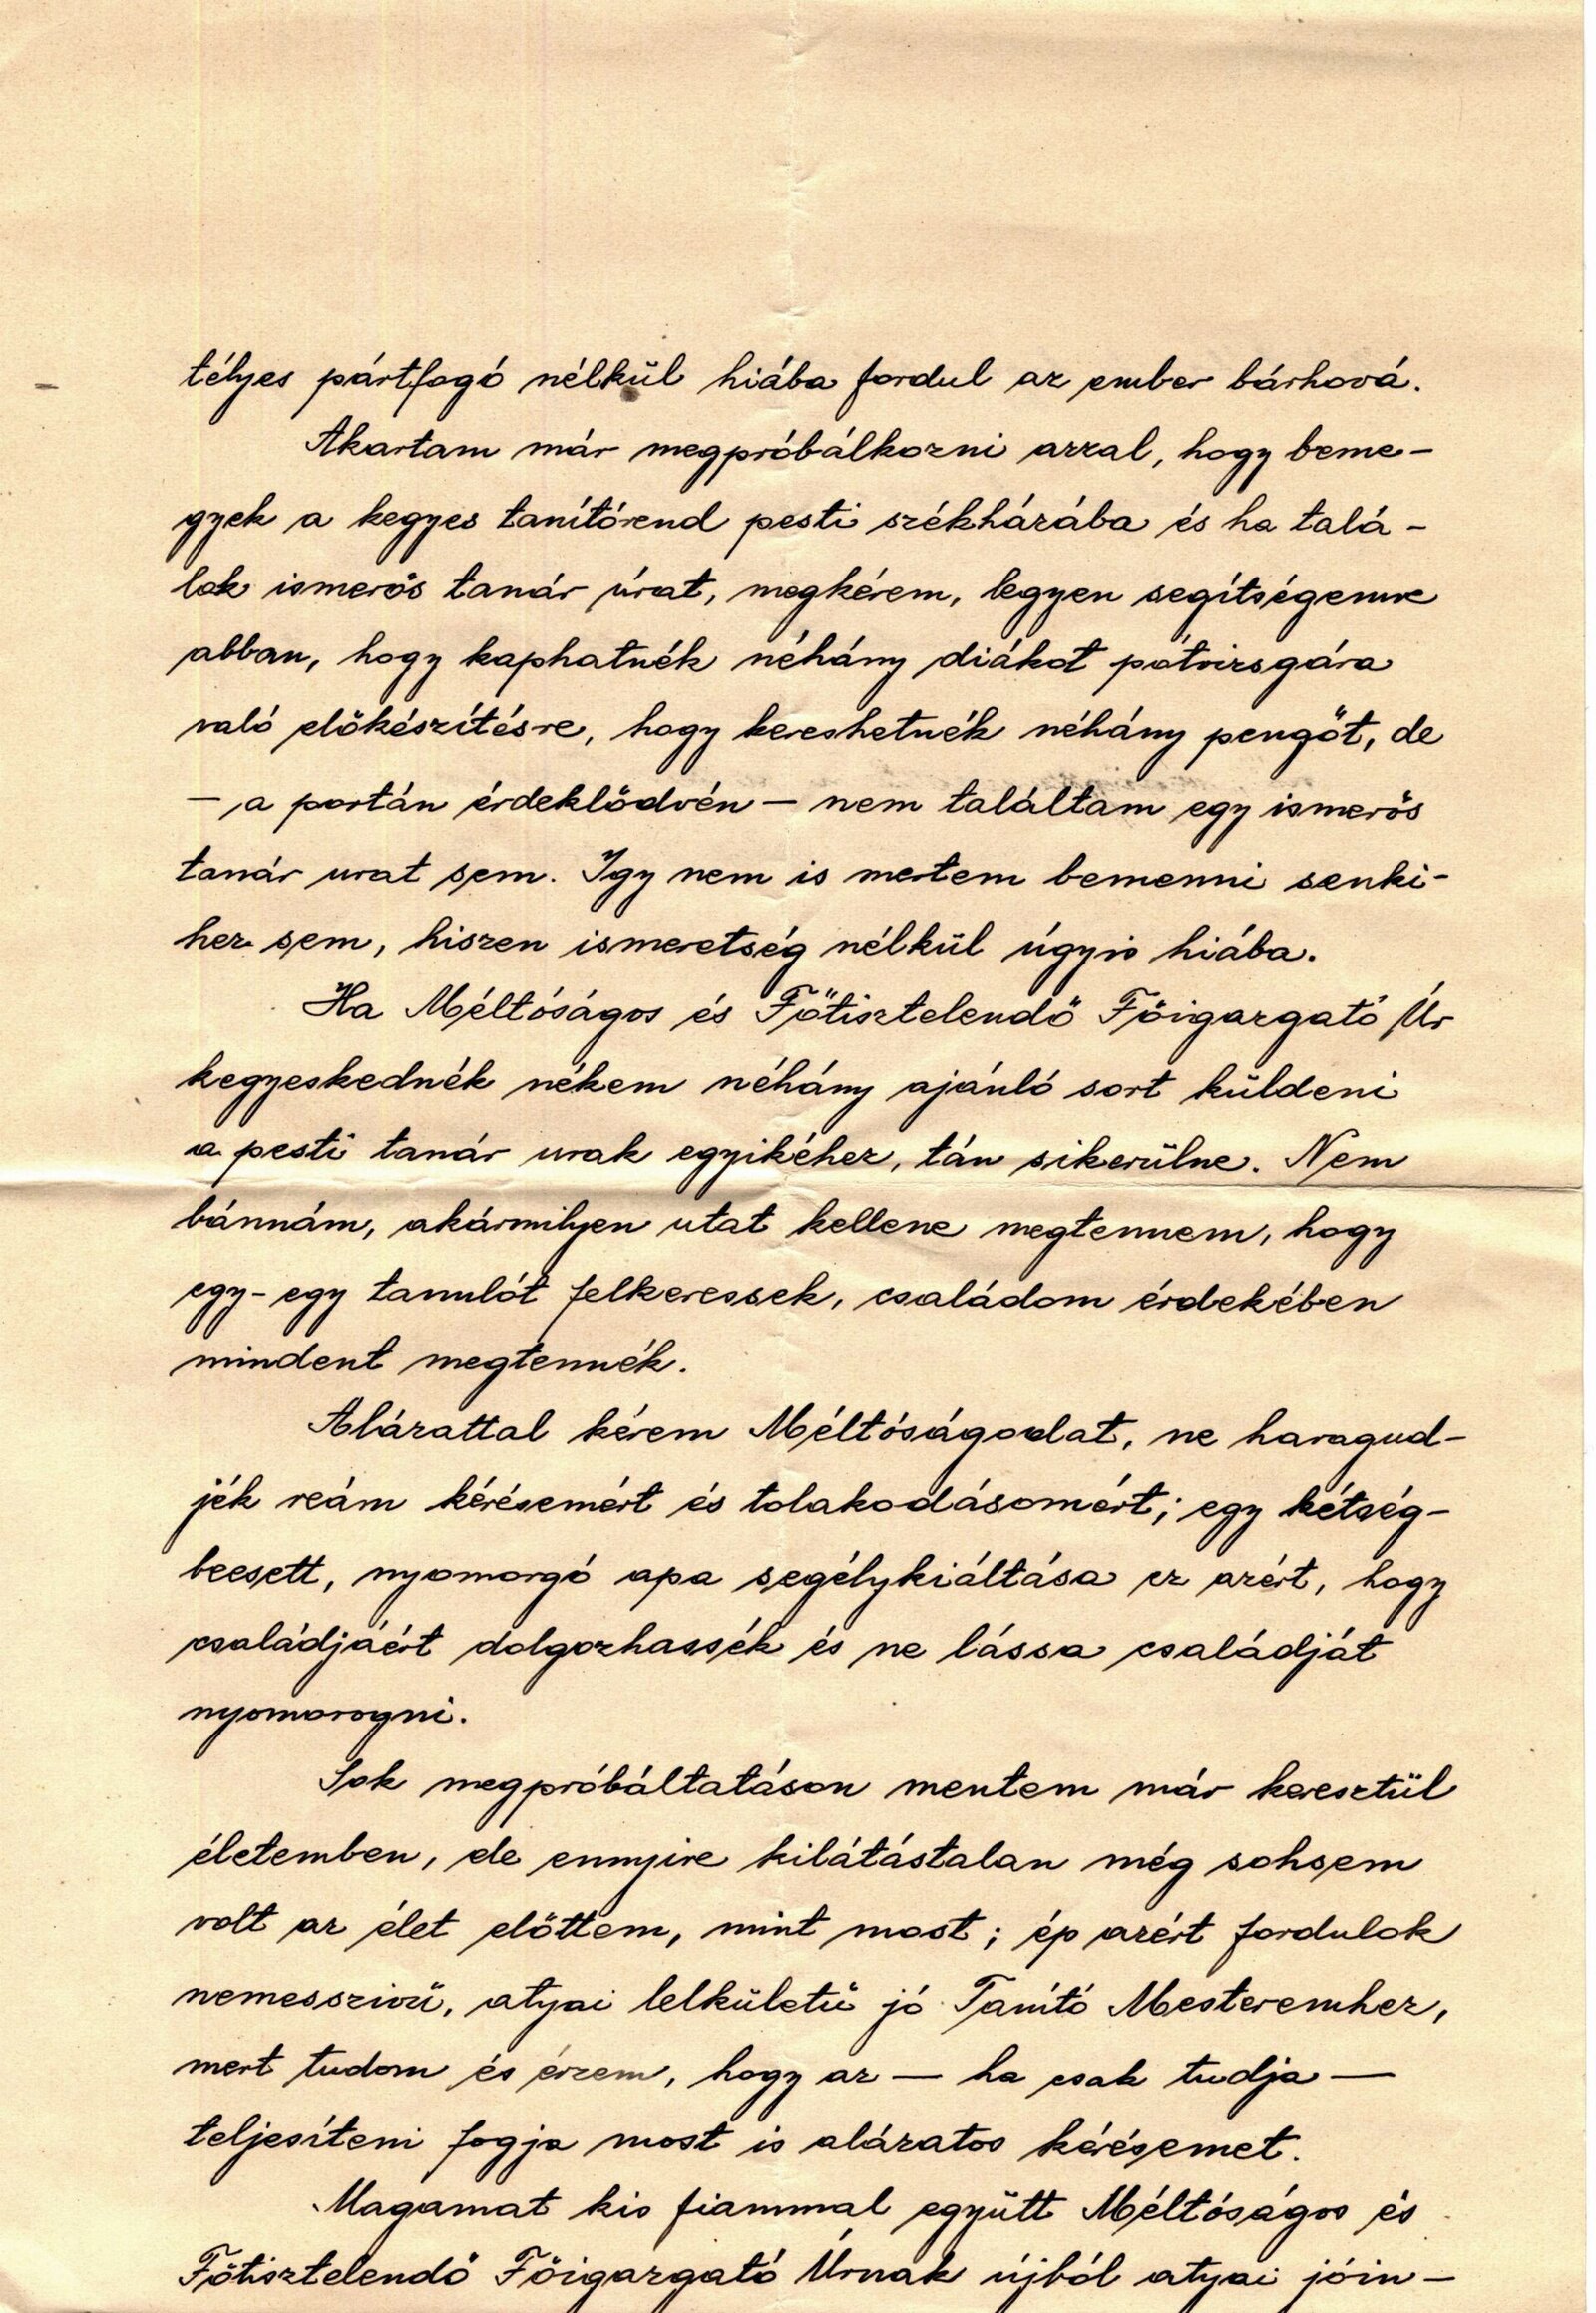 télyes pártfogó nélkül hiába fordul az ember bárhová.
Akartam már megpróbálkozni azzal, hogy beme-
gyek a kegyes tanítórend pesti székházába és ha talá-
lok ismerős tanár úrat, megkérem, legyen segítségemre
abban, hogy kaphatnék néhány diákot pótvizsgára
való előkészítésre, hogy kereshetnék néhány pengőt, de
— a portán érdeklődvén — nem találtam egy ismerős
tanár urat sem. Igy nem is mertem bemenni senki-
hez sem, hiszen ismeretség nélkül úgyis hiába.
Ha Méltóságos és Főtisztelendő Főigazgató Úr
kegyeskednék nékem néhány ajánló sort küldeni
a pesti tanár urak egyikéhez, tán sikerülne. Nem
bánnám, akármilyen utat kellene megtennem, hogy
egy-egy tanulót felkeressek, családom érdekében
mindent megtennék.
Alázattal kérem Méltóságodat, ne haragud-
jék reám kérésemért és tolakodásomért; egy kétség-
beesett, nyomorgó apa segélykiáltása ez azért, hogy
családjáért dolgozhassék és ne lássa családját
nyomorogni.
Sok megpróbáltatáson mentem már keresztül
életemben, de ennyire kilátástalan még sohsem
volt az élet előttem, mint most; ép azért fordulok
nemesszivű, atyai lelkületű jó Tanító Mesteremhez,
mert tudom és érzem, hogy az — ha csak tudja —
teljesíteni fogja most is alázatos kérésemet.
Magamat kis fiammal együtt Méltóságos és
Főtisztelendő Főigazgató Úrnak újból atyai jóin-